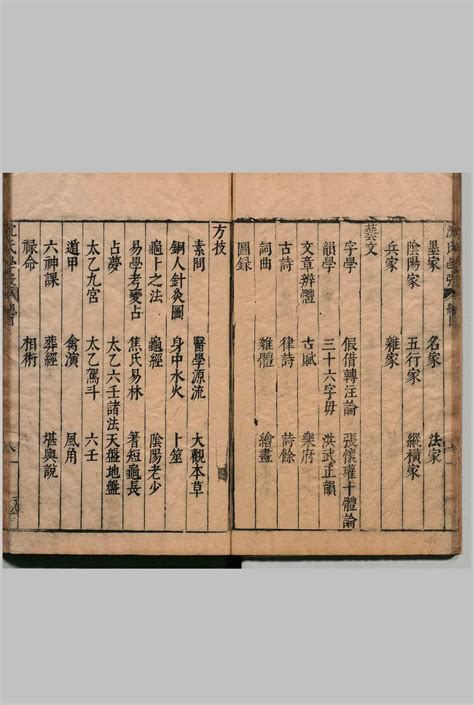 墨家 名家 法家
陰陽家 五行家 縱橫家
兵家 雜家
藝文
字學 假借轉注論 張懷瓘十體論
韻學 三十六字母 洪武正韻
文章辨體 古賦 樂府
古詩 律詩 詩餘
詞曲 雜體 繪畫
圖錄
方技
素問 醫學源流 大觀本草
銅人針灸圖 身中水火 卜筮
龜卜之法 龜經 陰陽老少
易學考變占 焦氏易林 蓍短龜長
占夢 太乙六壬諸法 天盤地盤
太乙九宮 太乙駕斗 六壬
遁甲 禽演 風角
六神課 葬經 堪輿說
祿命 相術